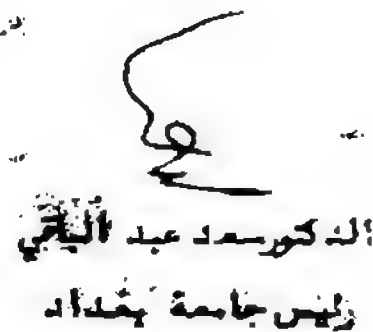 الدكتور سعد عبد الباقي
رئيس جامعة بغداد